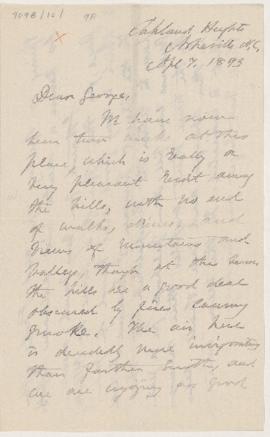 9098/10/ 9A
x
Oakland Heights
Asheville N.C.
Apl 7. 1893
Dear George,
We have now
been two weeks at this
place, which is really a
very pleasant resort among
the hills, with no end
of walks, drives and
views of mountains and
valley, though at this season
the hills are a good deal
obscured by fires causing
smoke. The air here
is decidedly more invigorating
than farther South, and
we are enjoying a good